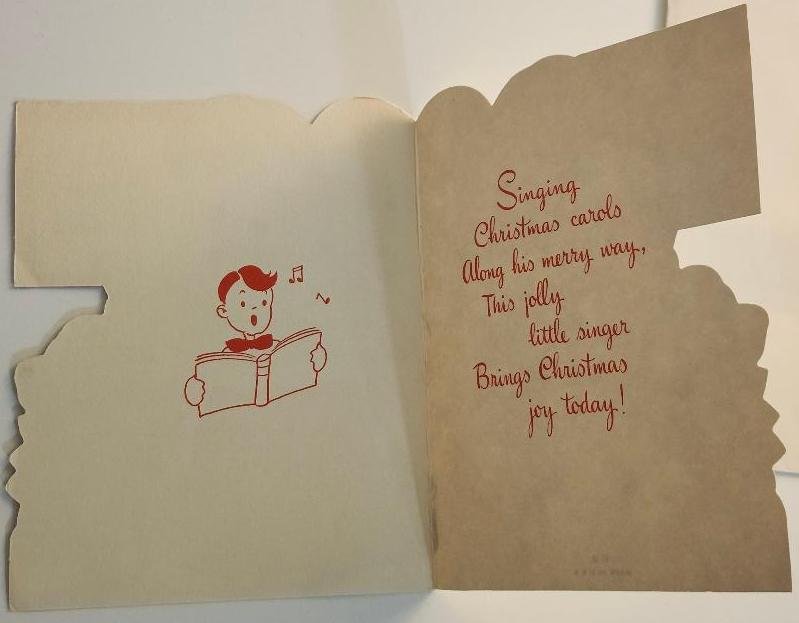 Singing
Christmas carols
Along his merry way,
This jolly
little singer
Brings Christmas
joy today!